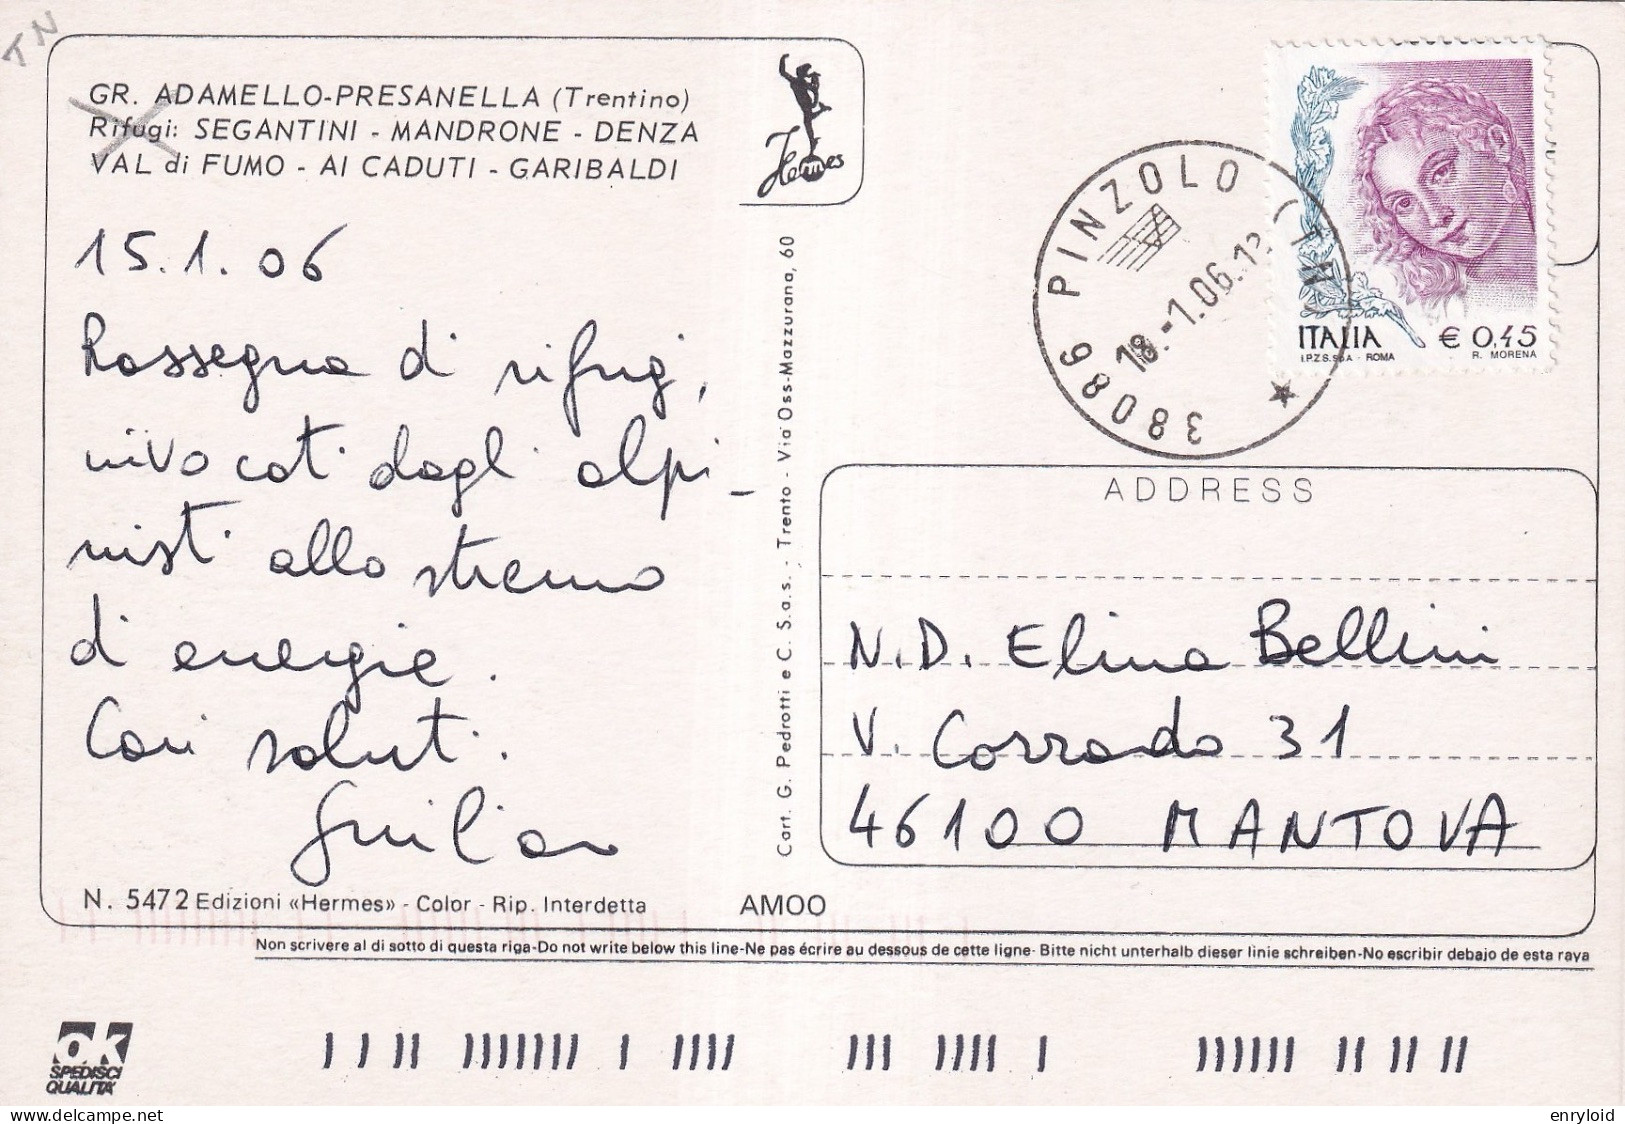 TN
GR. ADAMELLO-PRESANELLA (Trentino)
Rifugi: SEGANTINI - MANDRONE - DENZA
VAL di FUMO - AI CADUTI - GARIBALDI
Hermes
15.1.06
Rassegna di rifugi,
invocati dagli alpi-
nisti allo stremo
di energie.
Cari saluti.
Giulio
N. 5472 Edizioni «Hermes» - Color - Rip. Interdetta
AMOO
Cart. G. Pedrotti e C. S.a.s. - Trento - Via Oss-Mazzurana, 60
38086 PINZOLO (TN)
18.-1.06.
ITALIA € 0,45
I.P.Z.S. S.p.A. - ROMA R. MORENA
ADDRESS
N.D. Elina Bellini
V. Corrado 31
46100 MANTOVA
Non scrivere al di sotto di questa riga-Do not write below this line-Ne pas écrire au dessous de cette ligne-Bitte nicht unterhalb dieser linie schreiben-No escribir debajo de esta raya
OK
SPEDISCI
QUALITA'
delcampe.net
enryloid